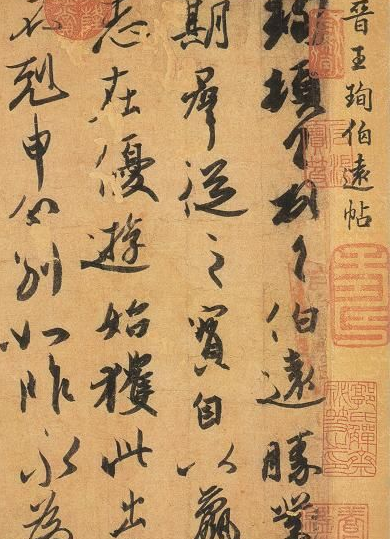 晋王珣伯遠帖
珣頓首頓首伯遠勝業
期群從之寶自以羸
志在優遊始獲此出
不剋申分別如昨永為